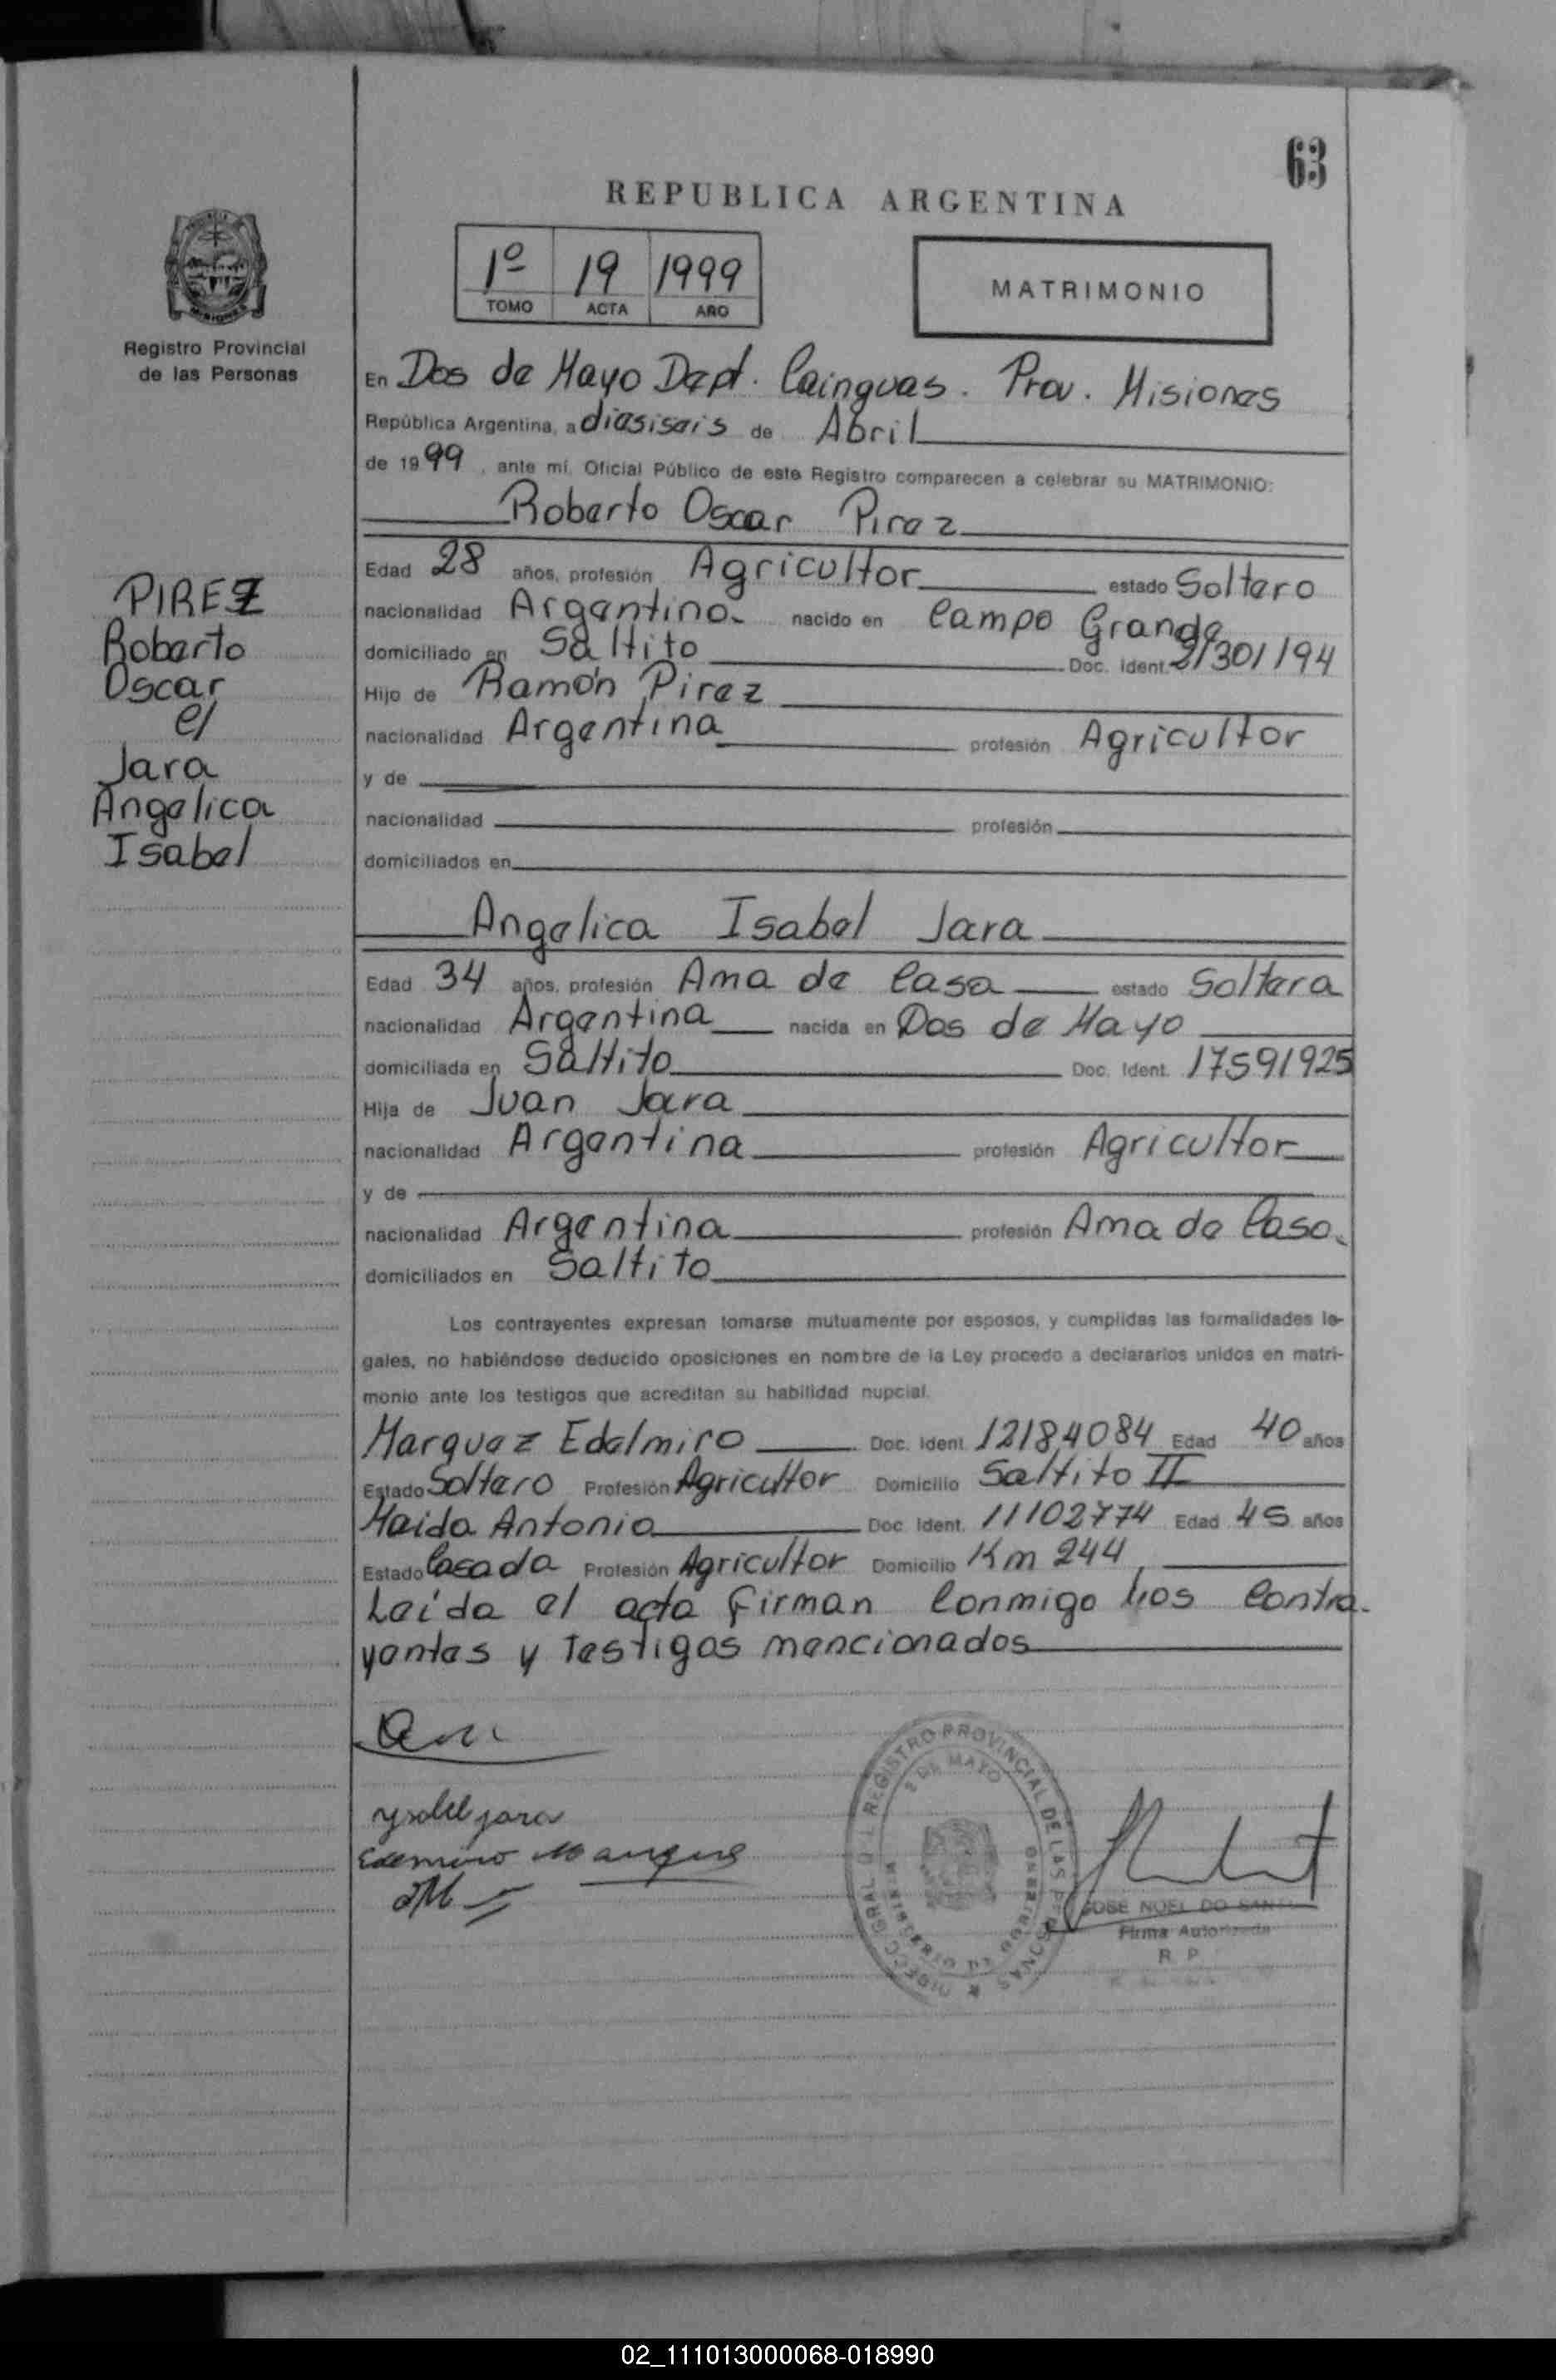 63
REPUBLICA ARGENTINA
1º 19 1999
TOMO ACTA AÑO
MATRIMONIO
Registro Provincial
de las Personas
PIREZ
Roberto
Oscar
c/
Jara
Angelica
Isabel
En Dos de Mayo Dept. Cainguas. Prov. Misiones
República Argentina, a diesiseis de Abril
de 1999, ante mí, Oficial Público de este Registro comparecen a celebrar su MATRIMONIO:
Roberto Oscar Pirez
Edad 28 años, profesión Agricultor estado Soltero
nacionalidad Argentino. nacido en Campo Grande
domiciliado en Saltito Doc. Ident. 21301194
Hijo de Ramón Pirez
nacionalidad Argentina profesión Agricultor
y de
nacionalidad profesión
domiciliados en
Angelica Isabel Jara
Edad 34 años, profesión Ama de Casa estado Soltera
nacionalidad Argentina nacida en Dos de Mayo
domiciliada en Saltito Doc. Ident. 17591925
Hija de Juan Jara
nacionalidad Argentina profesión Agricultor
y de
nacionalidad Argentina profesión Ama de Casa.
domiciliados en Saltito
Los contrayentes expresan tomarse mutuamente por esposos, y cumplidas las formalidades le-
gales, no habiéndose deducido oposiciones en nombre de la Ley procedo a declararlos unidos en matri-
monio ante los testigos que acreditan su habilidad nupcial.
Marquez Edelmiro Doc. Ident. 12184084 Edad 40 años
Estado Soltero Profesión Agricultor Domicilio Saltito II
Maida Antonio Doc. Ident. 11102774 Edad 45 años
Estado Casado Profesión Agricultor Domicilio Km 244
Leida el acta firman Conmigo los Contra-
yentes y Testigos mencionados
ysabel jara
REGISTRO PROVINCIAL DE LAS PERSONAS
2 DE MAYO
JOSE NOEL DO
Firma Autorizada
R. P.
02_111013000068-018990